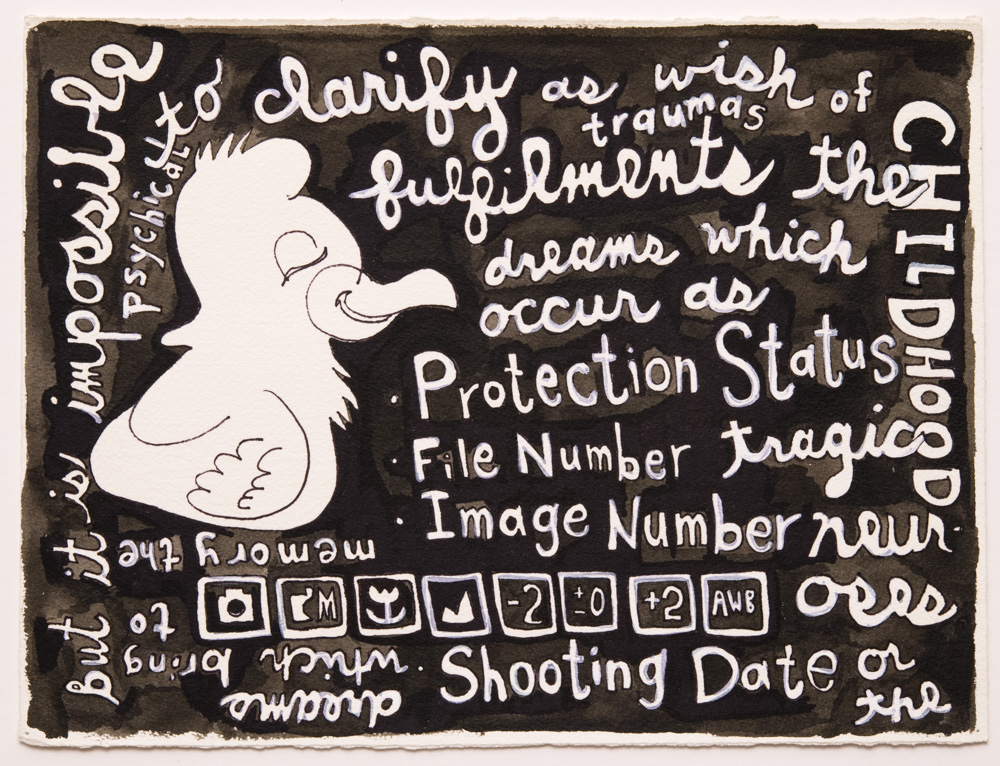 but it is impossible
to clarify as wish
fulfilments the
dreams which
occur as
· Protection Status
· File Number
· Image Number
M
-2
±0
+2
AWB
· Shooting Date
tragic
neur-
oses
or
the
dreams
which bring
to
memory the
psychical
traumas
of
CHILDHOOD